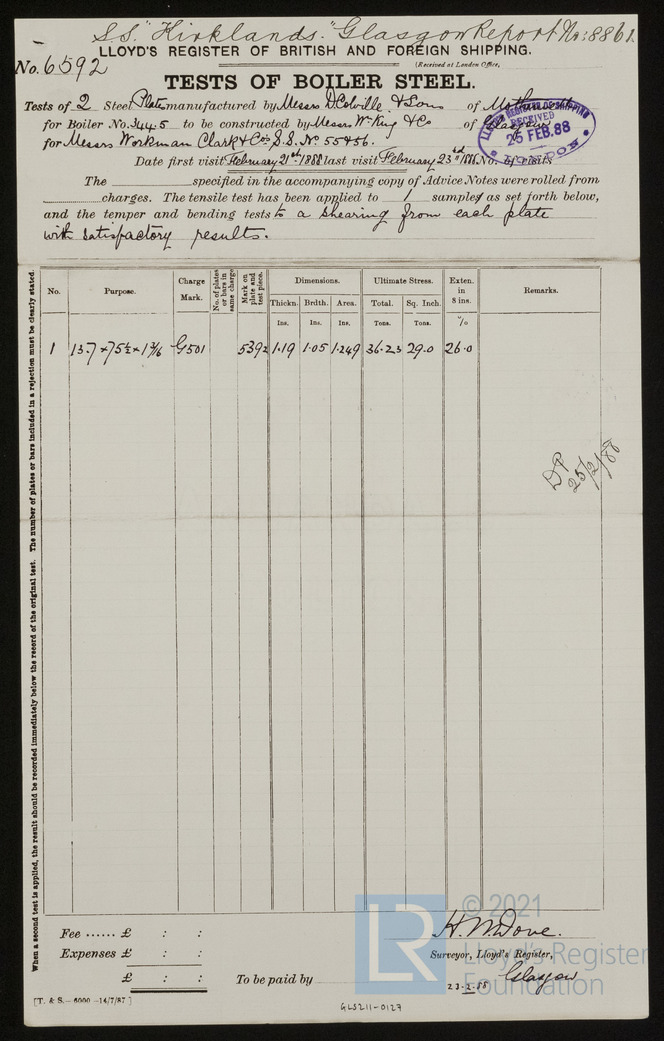 S.S. "Kirklands." Glasgow Report No. 8861
LLOYD'S REGISTER OF BRITISH AND FOREIGN SHIPPING.
No. 6592
(Received at London Office,
TESTS OF BOILER STEEL.
Tests of 2 Steel Plates manufactured by Messrs D Colville & Sons of Motherwell
for Boiler No. 3445 to be constructed by Messrs Wm King & Co of Glasgow
for Messrs Workman Clark & Co's S.S. No. 55 & 56.
LLOYD'S REGISTER OF SHIPPING
RECEIVED
25 FEB. 88
LONDON
Date first visit February 21st 1888 last visit February 23rd 1888 No. of visits
The specified in the accompanying copy of Advice Notes were rolled from
charges. The tensile test has been applied to 1 samples as set forth below,
and the temper and bending tests to a shearing from each plate
with satisfactory results.
When a second test is applied, the result should be recorded immediately below the record of the original test. The number of plates or bars included in a rejection must be clearly stated.
No. Purpose. Charge Mark. No. of plates or bars in same charge Mark on plate and test piece. Dimensions. Ultimate Stress. Exten. in 8 ins. Remarks.
Thickn. Brdth. Area. Total. Sq. Inch.
Ins. Ins. Ins. Tons. Tons. %
1 13.7 × 75½ × 1 3/16 G501 5392 1.19 1.05 1.249 36.23 29.0 26.0
DP
25/2/88
Fee ...... £ : :
Expenses £ : :
£ : :
To be paid by
H. W. Dove.
Surveyor, Lloyd's Register,
Glasgow
23-2-88
[T. & S.—6000—14/7/87]
GLS211-0127
LR
© 2021
Lloyd's Register
Foundation